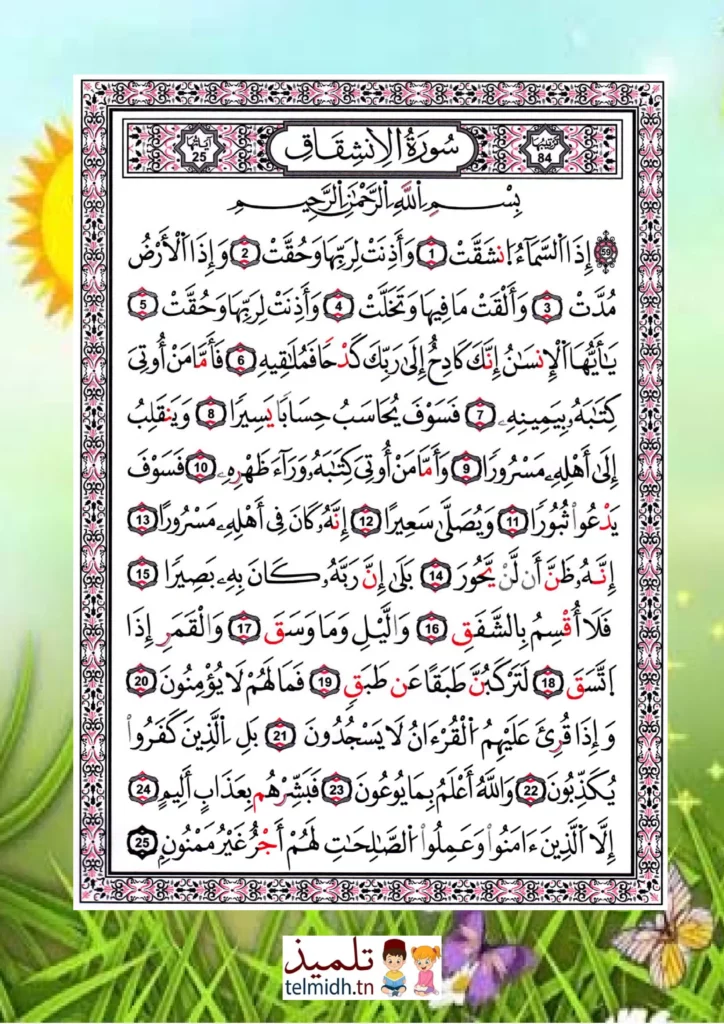 ترتيبها 84 سُورَةُ الِانشِقَاقِ آياتها 25
بِسْمِ اِللَّهِ اِلرَّحْمَٰنِ اِلرَّحِيمِ
59 إِذَا اَلسَّمَآءُ اُنشَقَّتْ 1 وَأَذِنَتْ لِرَبِّهَا وَحُقَّتْ 2 وَإِذَا اَلْأَرْضُ
مُدَّتْ 3 وَأَلْقَتْ مَا فِيهَا وَتَخَلَّتْ 4 وَأَذِنَتْ لِرَبِّهَا وَحُقَّتْ 5
يَٰٓأَيُّهَا اَلْإِنسَٰنُ إِنَّكَ كَادِحٌ إِلَىٰ رَبِّكَ كَدْحًا فَمُلَٰقِيهِ 6 فَأَمَّا مَنْ أُوتِيَ
كِتَٰبَهُۥ بِيَمِينِهِۦ 7 فَسَوْفَ يُحَاسَبُ حِسَابًا يَسِيرًا 8 وَيَنقَلِبُ
إِلَىٰ أَهْلِهِۦ مَسْرُورًا 9 وَأَمَّا مَنْ أُوتِيَ كِتَٰبَهُۥ وَرَآءَ ظَهْرِهِۦ 10 فَسَوْفَ
يَدْعُواْ ثُبُورًا 11 وَيُصَلَّىٰ سَعِيرًا 12 إِنَّهُۥ كَانَ فِي أَهْلِهِۦ مَسْرُورًا 13
إِنَّهُۥ ظَنَّ أَن لَّنْ يَّحُورَ 14 بَلَىٰ إِنَّ رَبَّهُۥ كَانَ بِهِۦ بَصِيرًا 15
فَلَا أُقْسِمُ بِالشَّفَقِ 16 وَالَّيْلِ وَمَا وَسَقَ 17 وَالْقَمَرِ إِذَا
اَتَّسَقَ 18 لَتَرْكَبُنَّ طَبَقًا عَن طَبَقٍ 19 فَمَا لَهُمْ لَا يُؤْمِنُونَ 20
وَإِذَا قُرِئَ عَلَيْهِمُ اُلْقُرْءَانُ لَا يَسْجُدُونَ 21 بَلِ اِلَّذِينَ كَفَرُواْ
يُكَذِّبُونَ 22 وَاللَّهُ أَعْلَمُ بِمَا يُوعُونَ 23 فَبَشِّرْهُم بِعَذَابٍ أَلِيمٍ 24
إِلَّا اَلَّذِينَ ءَامَنُواْ وَعَمِلُواْ اُلصَّٰلِحَٰتِ لَهُمْ أَجْرٌ غَيْرُ مَمْنُونٍ 25
تلميذ
telmidh.tn